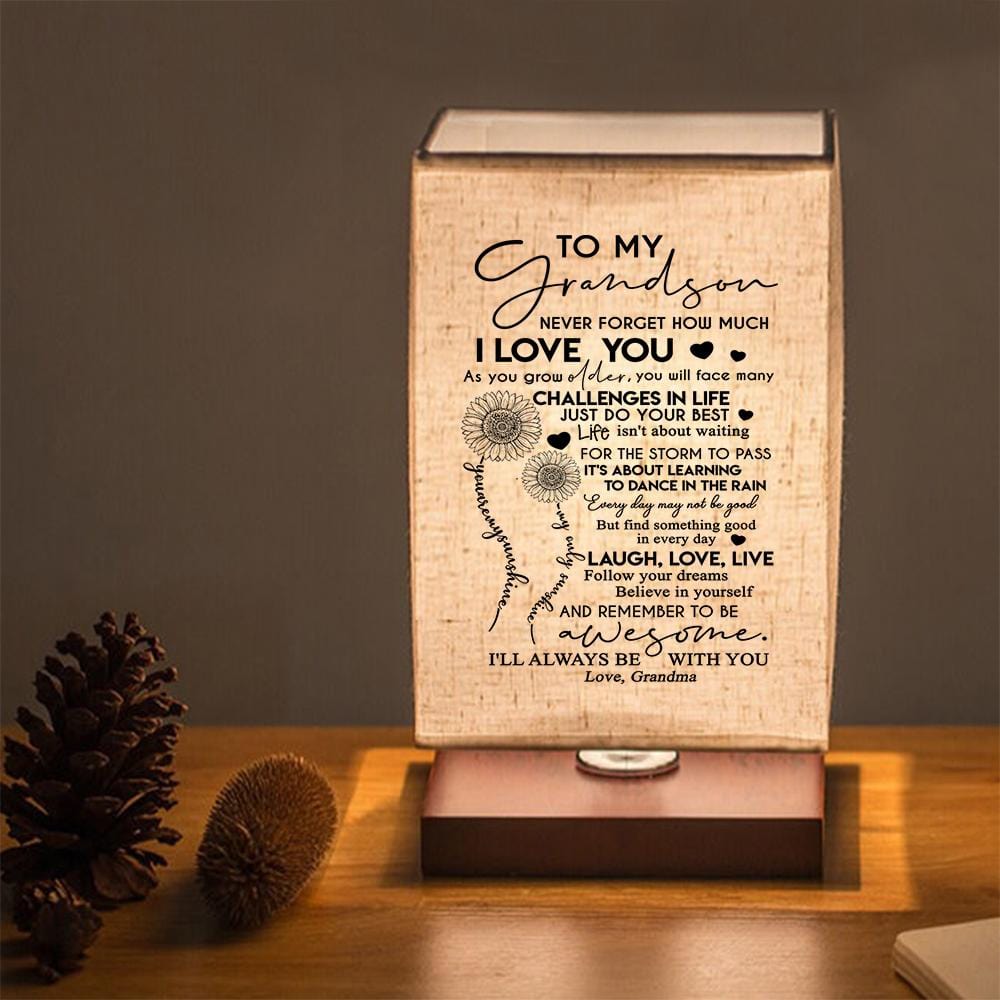 TO MY
Grandson
NEVER FORGET HOW MUCH
I LOVE YOU
As you grow older, you will face many
CHALLENGES IN LIFE
JUST DO YOUR BEST
Life isn't about waiting
FOR THE STORM TO PASS
IT'S ABOUT LEARNING
TO DANCE IN THE RAIN
Every day may not be good
But find something good
in every day
LAUGH, LOVE, LIVE
Follow your dreams
Believe in yourself
AND REMEMBER TO BE
awesome.
I'LL ALWAYS BE WITH YOU
Love, Grandma
youaremysunshine
my only sunshine